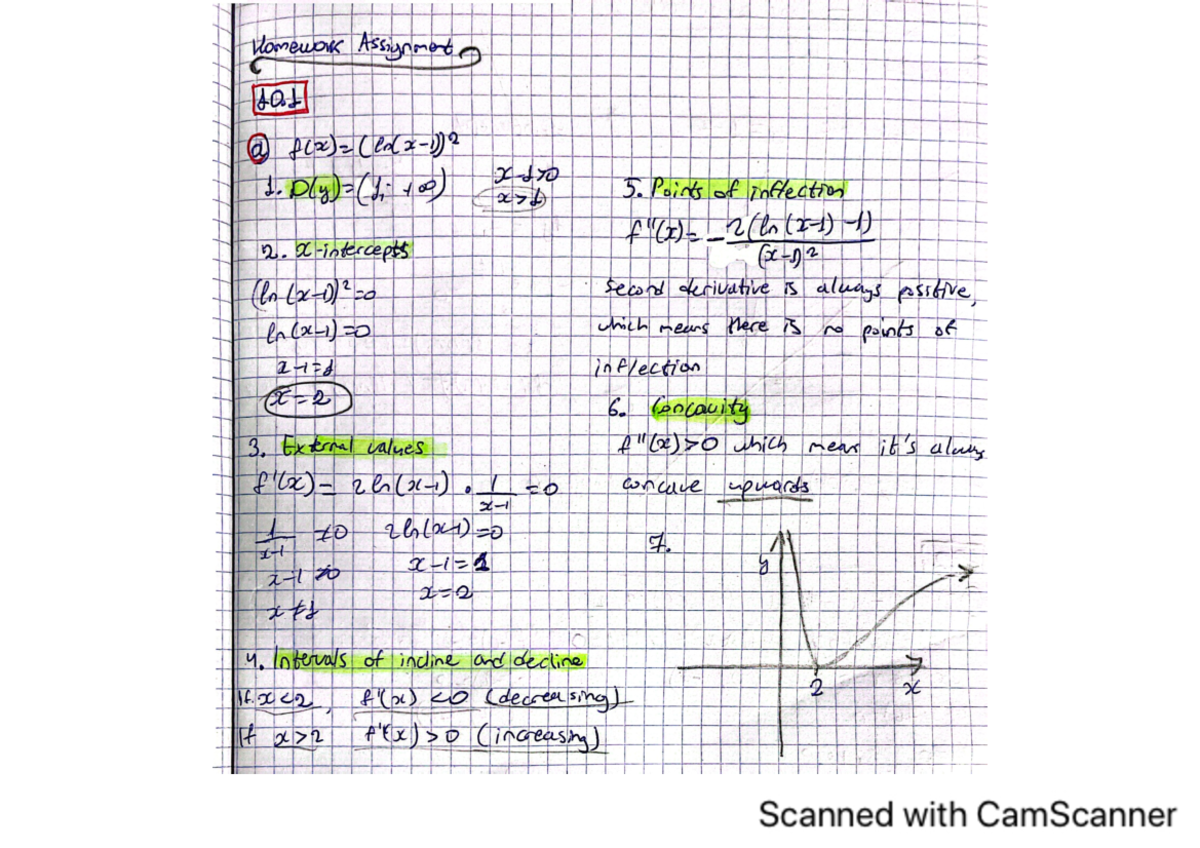 Homework Assignment
10.1
a f(x)=(ln(x-1))²
1. D(y)=(1; +∞)
x-1>0
x>1
2. x-intercepts
(ln(x-1))²=0
ln(x-1)=0
x-1=1
x=2
3. External values
f'(x)= 2ln(x-1) · 1/(x-1) =0
1/(x-1) ≠0 2ln(x-1)=0
x-1≠0 x-1=1
x≠1 x=2
4. Intervals of incline and decline
If x<2, f'(x) <0 (decreasing)
If x>2 f'(x)>0 (increasing)
5. Points of inflection
f''(x)= -2(ln(x-1)-1)/(x-1)²
Second derivative is always positive,
which means there is no points of
inflection
6. Concavity
f''(x)>0 which means it's always
concave upwards
7.
y
2 x
Scanned with CamScanner